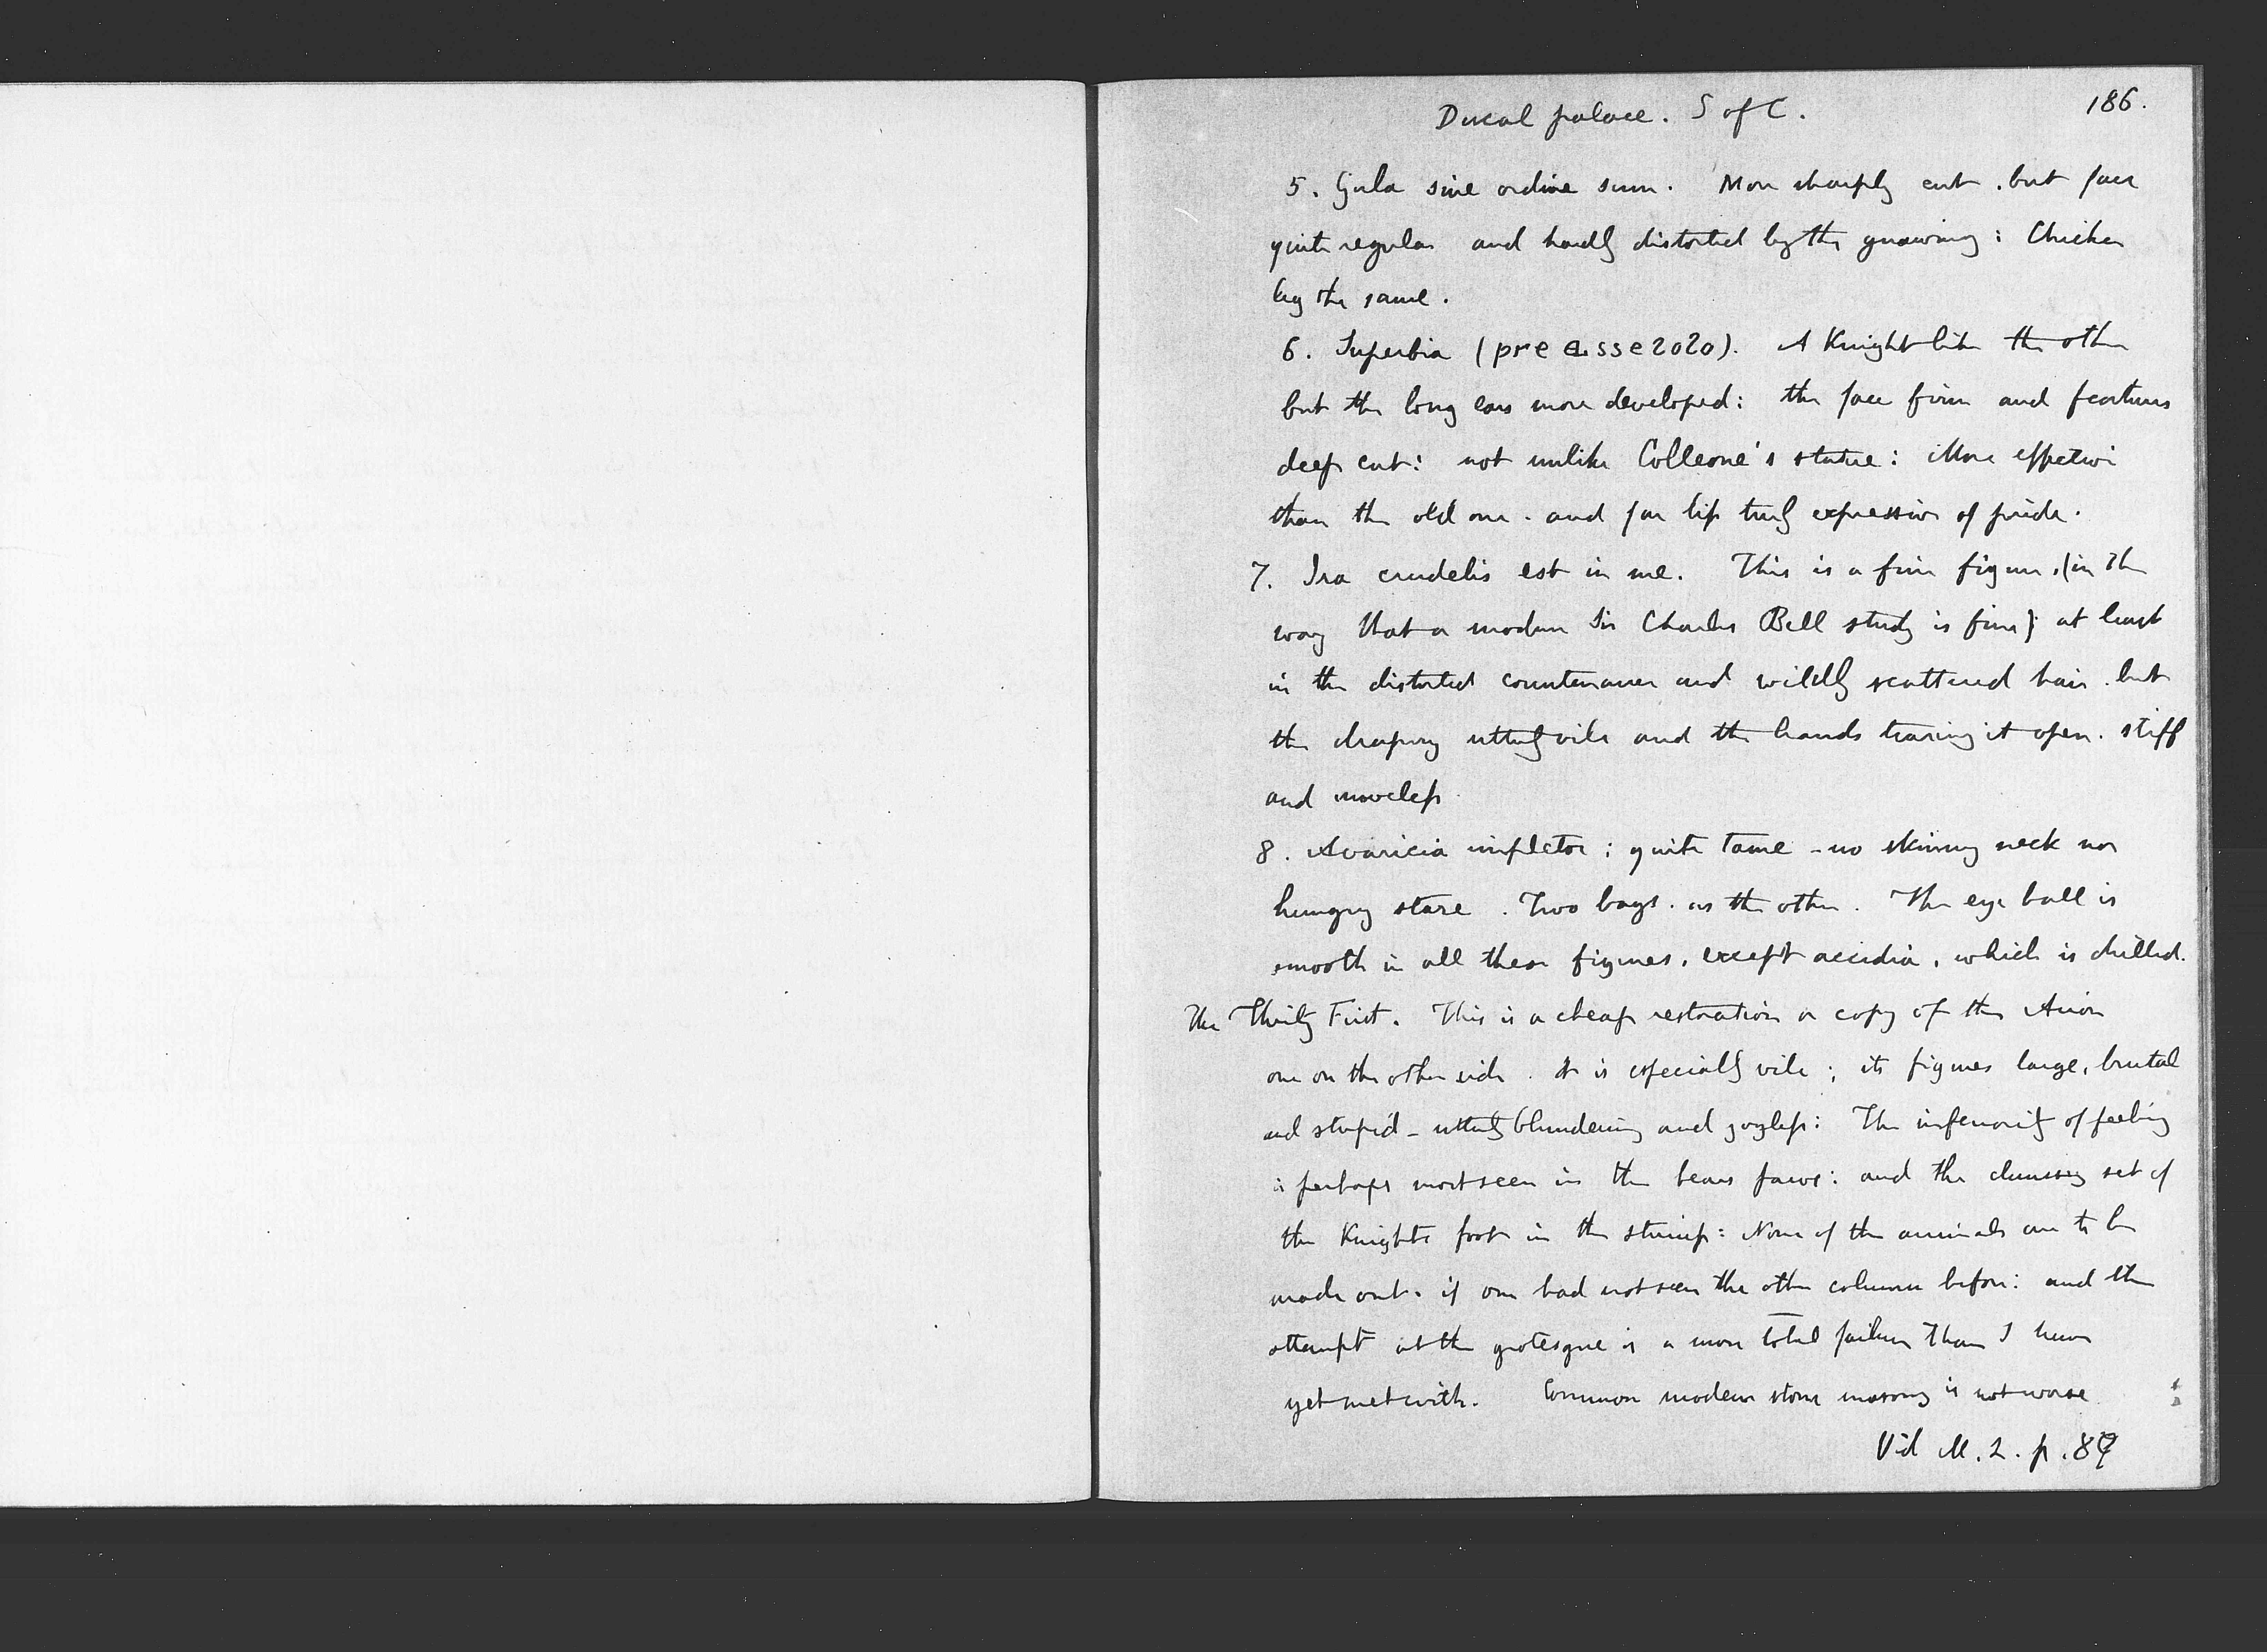 Ducal palace. S of C.
186.
5. Gula sine ordine sum. More sharply cut. but face
quite regular and hardly distorted by the gnawing: Chicken
leg the same.
6. Superbia (pre esse 2020). A Knight like the other
but the long ears more developed: the face firm and features
deep cut: not unlike Colleone's statue: More effective
than the old one. and for lip truly expressive of pride.
7. Ira crudelis est in me. This is a fine figure, (in the
way that a modern Sir Charles Bell study is fine) at least
in the distorted countenance and wildly scattered hair. but
the drapery utterly vile and the hands tearing it open. stiff
and moveless
8. Avaricia impletor; quite tame - no skinny neck nor
hungry stare. Two bags. as the other. The eye ball is
smooth in all these figures, except accidia, which is drilled.
The Thirty First. This is a cheap restoration or copy of the
one on the other side. It is especially vile; its figures large, brutal
and stupid - utterly blundering and joyless: The inferiority of feeling
is perhaps most seen in the bears paws: and the clumsy set of
the Knights foot in the stirrup: None of the animals are to be
made out. if one had not seen the other column before: and the
attempt at the grotesque is a more total failure than I have
yet met with. Common modern stone masonry is not worse
Vid M. 2. p. 89